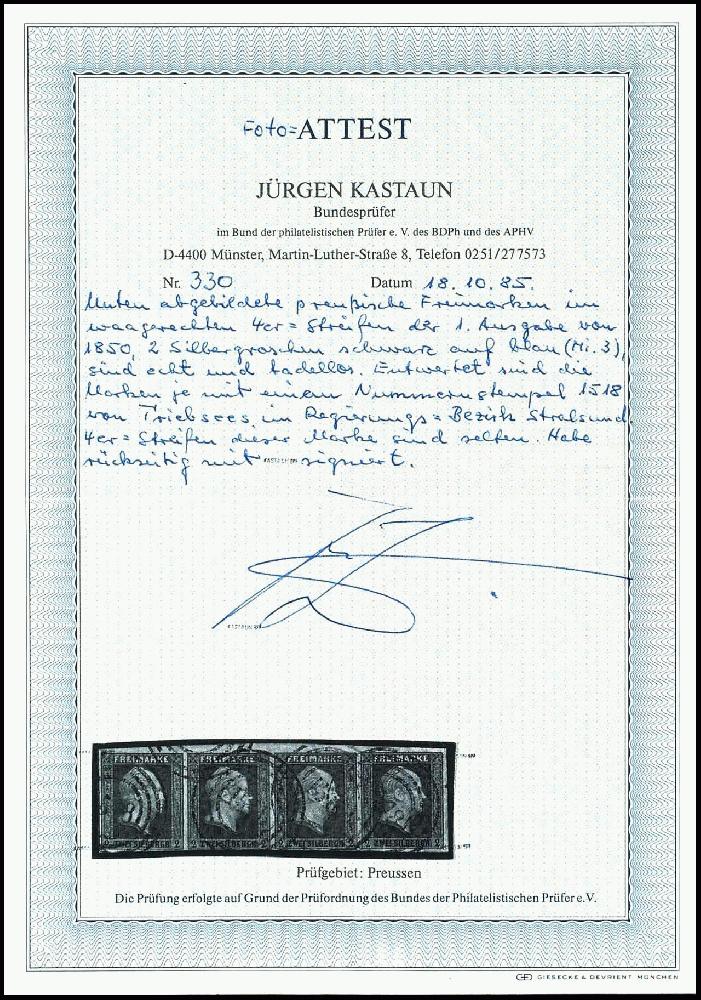 Foto=ATTEST
JÜRGEN KASTAUN
Bundesprüfer
im Bund der philatelistischen Prüfer e. V. des BDPh und des APHV
D-4400 Münster, Martin-Luther-Straße 8, Telefon 0251/277573
Nr. 330 Datum 18.10.85.
Unten abgebildete preußische Freimarken im
waagerechten 4er=Streifen der 1. Ausgabe von
1850, 2 Silbergroschen schwarz auf blau (Mi.3),
sind echt und tadellos. Entwertet sind die
Marken je mit einem Nummernstempel 1518
von Triebsees im Regierungs=Bezirk Stralsund.
4er=Streifen dieser Marke sind selten. Habe
rückseitig mit KASTAUN BPP signiert.
KASTAUN BPP
FREIMARKE FREIMARKE FREIMARKE FREIMARKE
2 ZWEI SILBERGR. 2 2 ZWEI SILBERGR. 2 2 ZWEI SILBERGR. 2 2 ZWEI SILBERGR. 2
Prüfgebiet: Preussen
Die Prüfung erfolgte auf Grund der Prüfordnung des Bundes der Philatelistischen Prüfer e.V.
GIESECKE & DEVRIENT MÜNCHEN